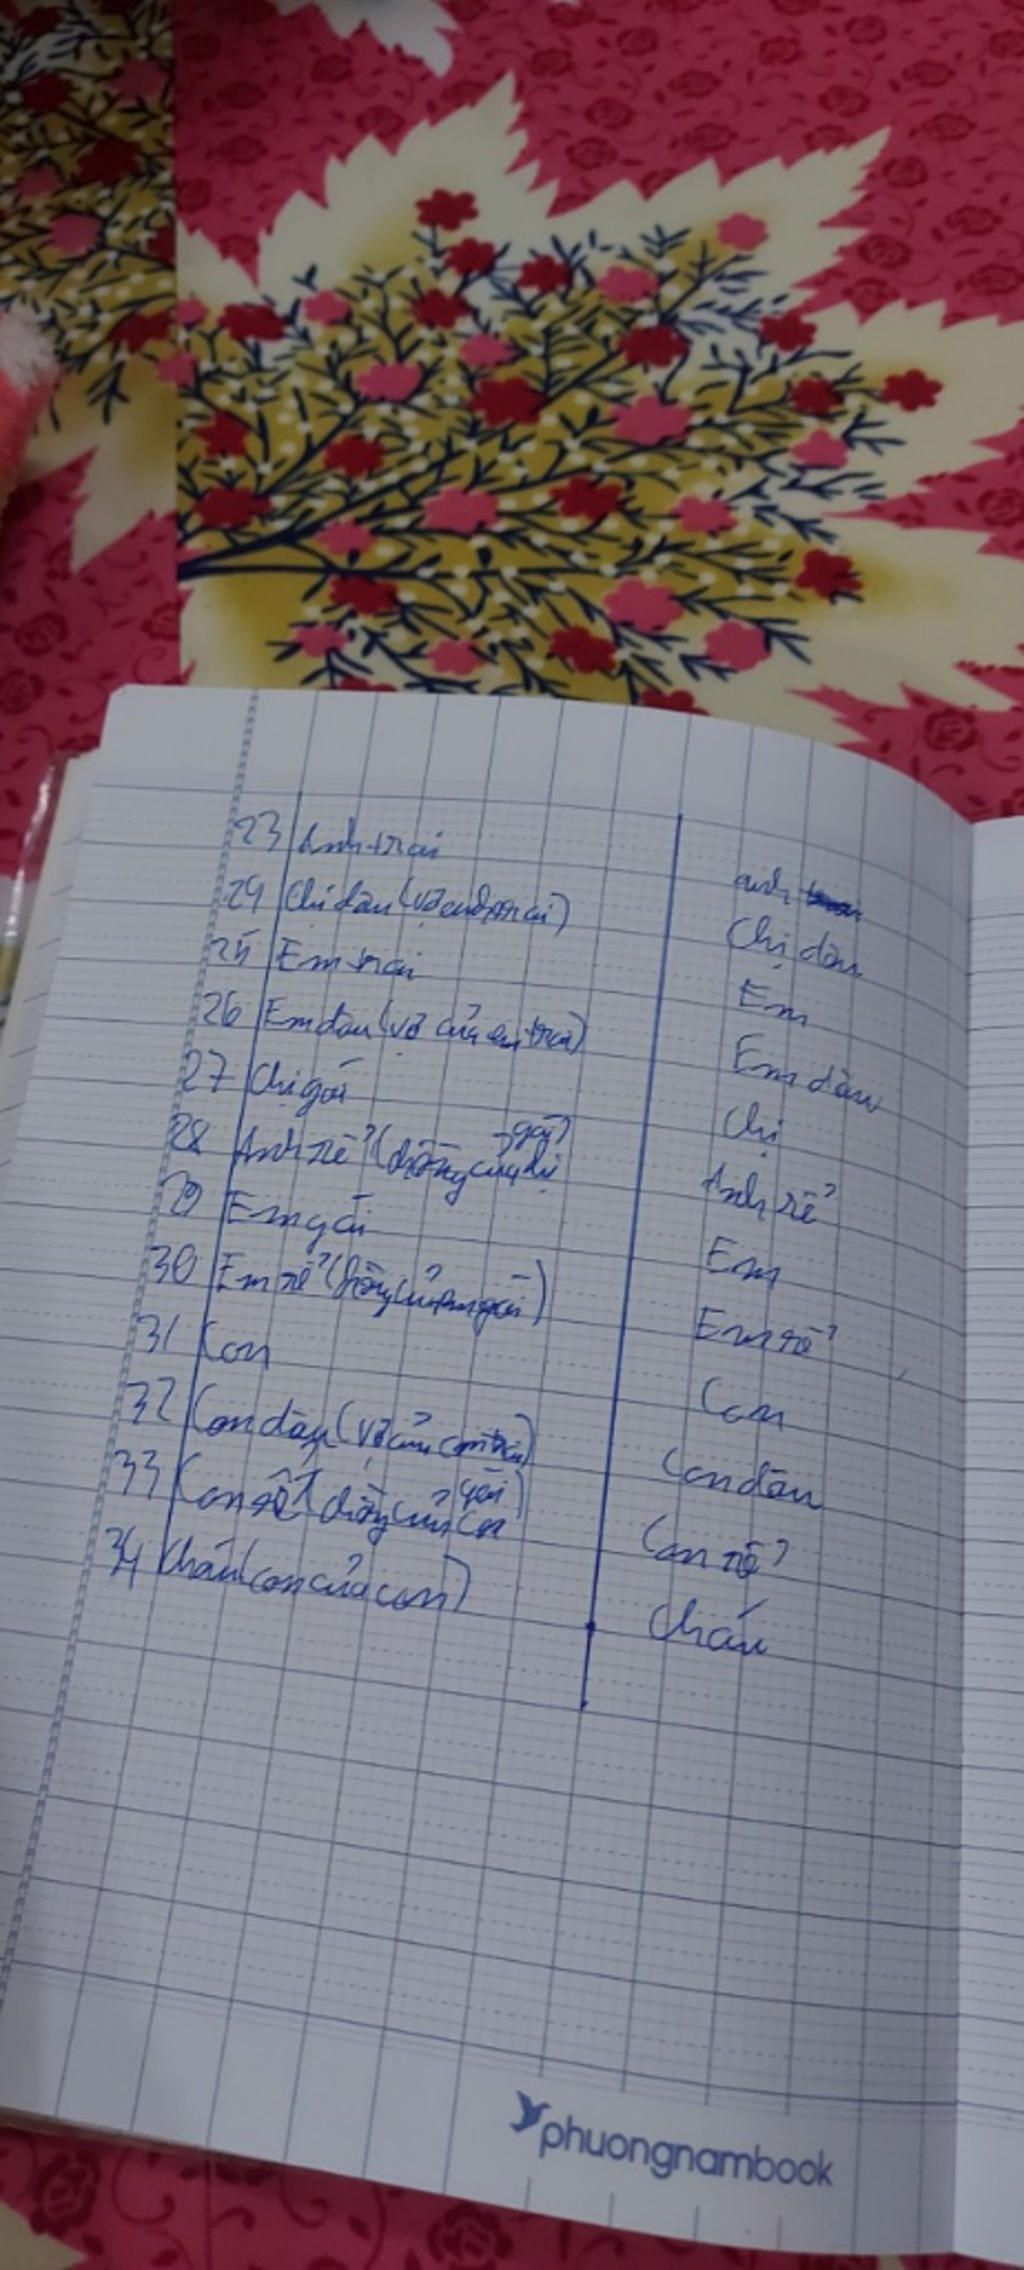 23 Anh trai anh
24 Chị dâu (vợ anh trai) Chị dâu
25 Em trai Em
26 Em dâu (vợ của em trai) Em dâu
27 Chị gái Chị
28 Anh rể (chồng của chị gái) Anh rể
29 Em gái Em
30 Em rể (chồng của em gái) Em rể
31 Con Con
32 Con dâu (vợ của con trai) Con dâu
33 Con rể (chồng của con gái) Con rể
34 Cháu (con của con) Cháu
phuongnambook